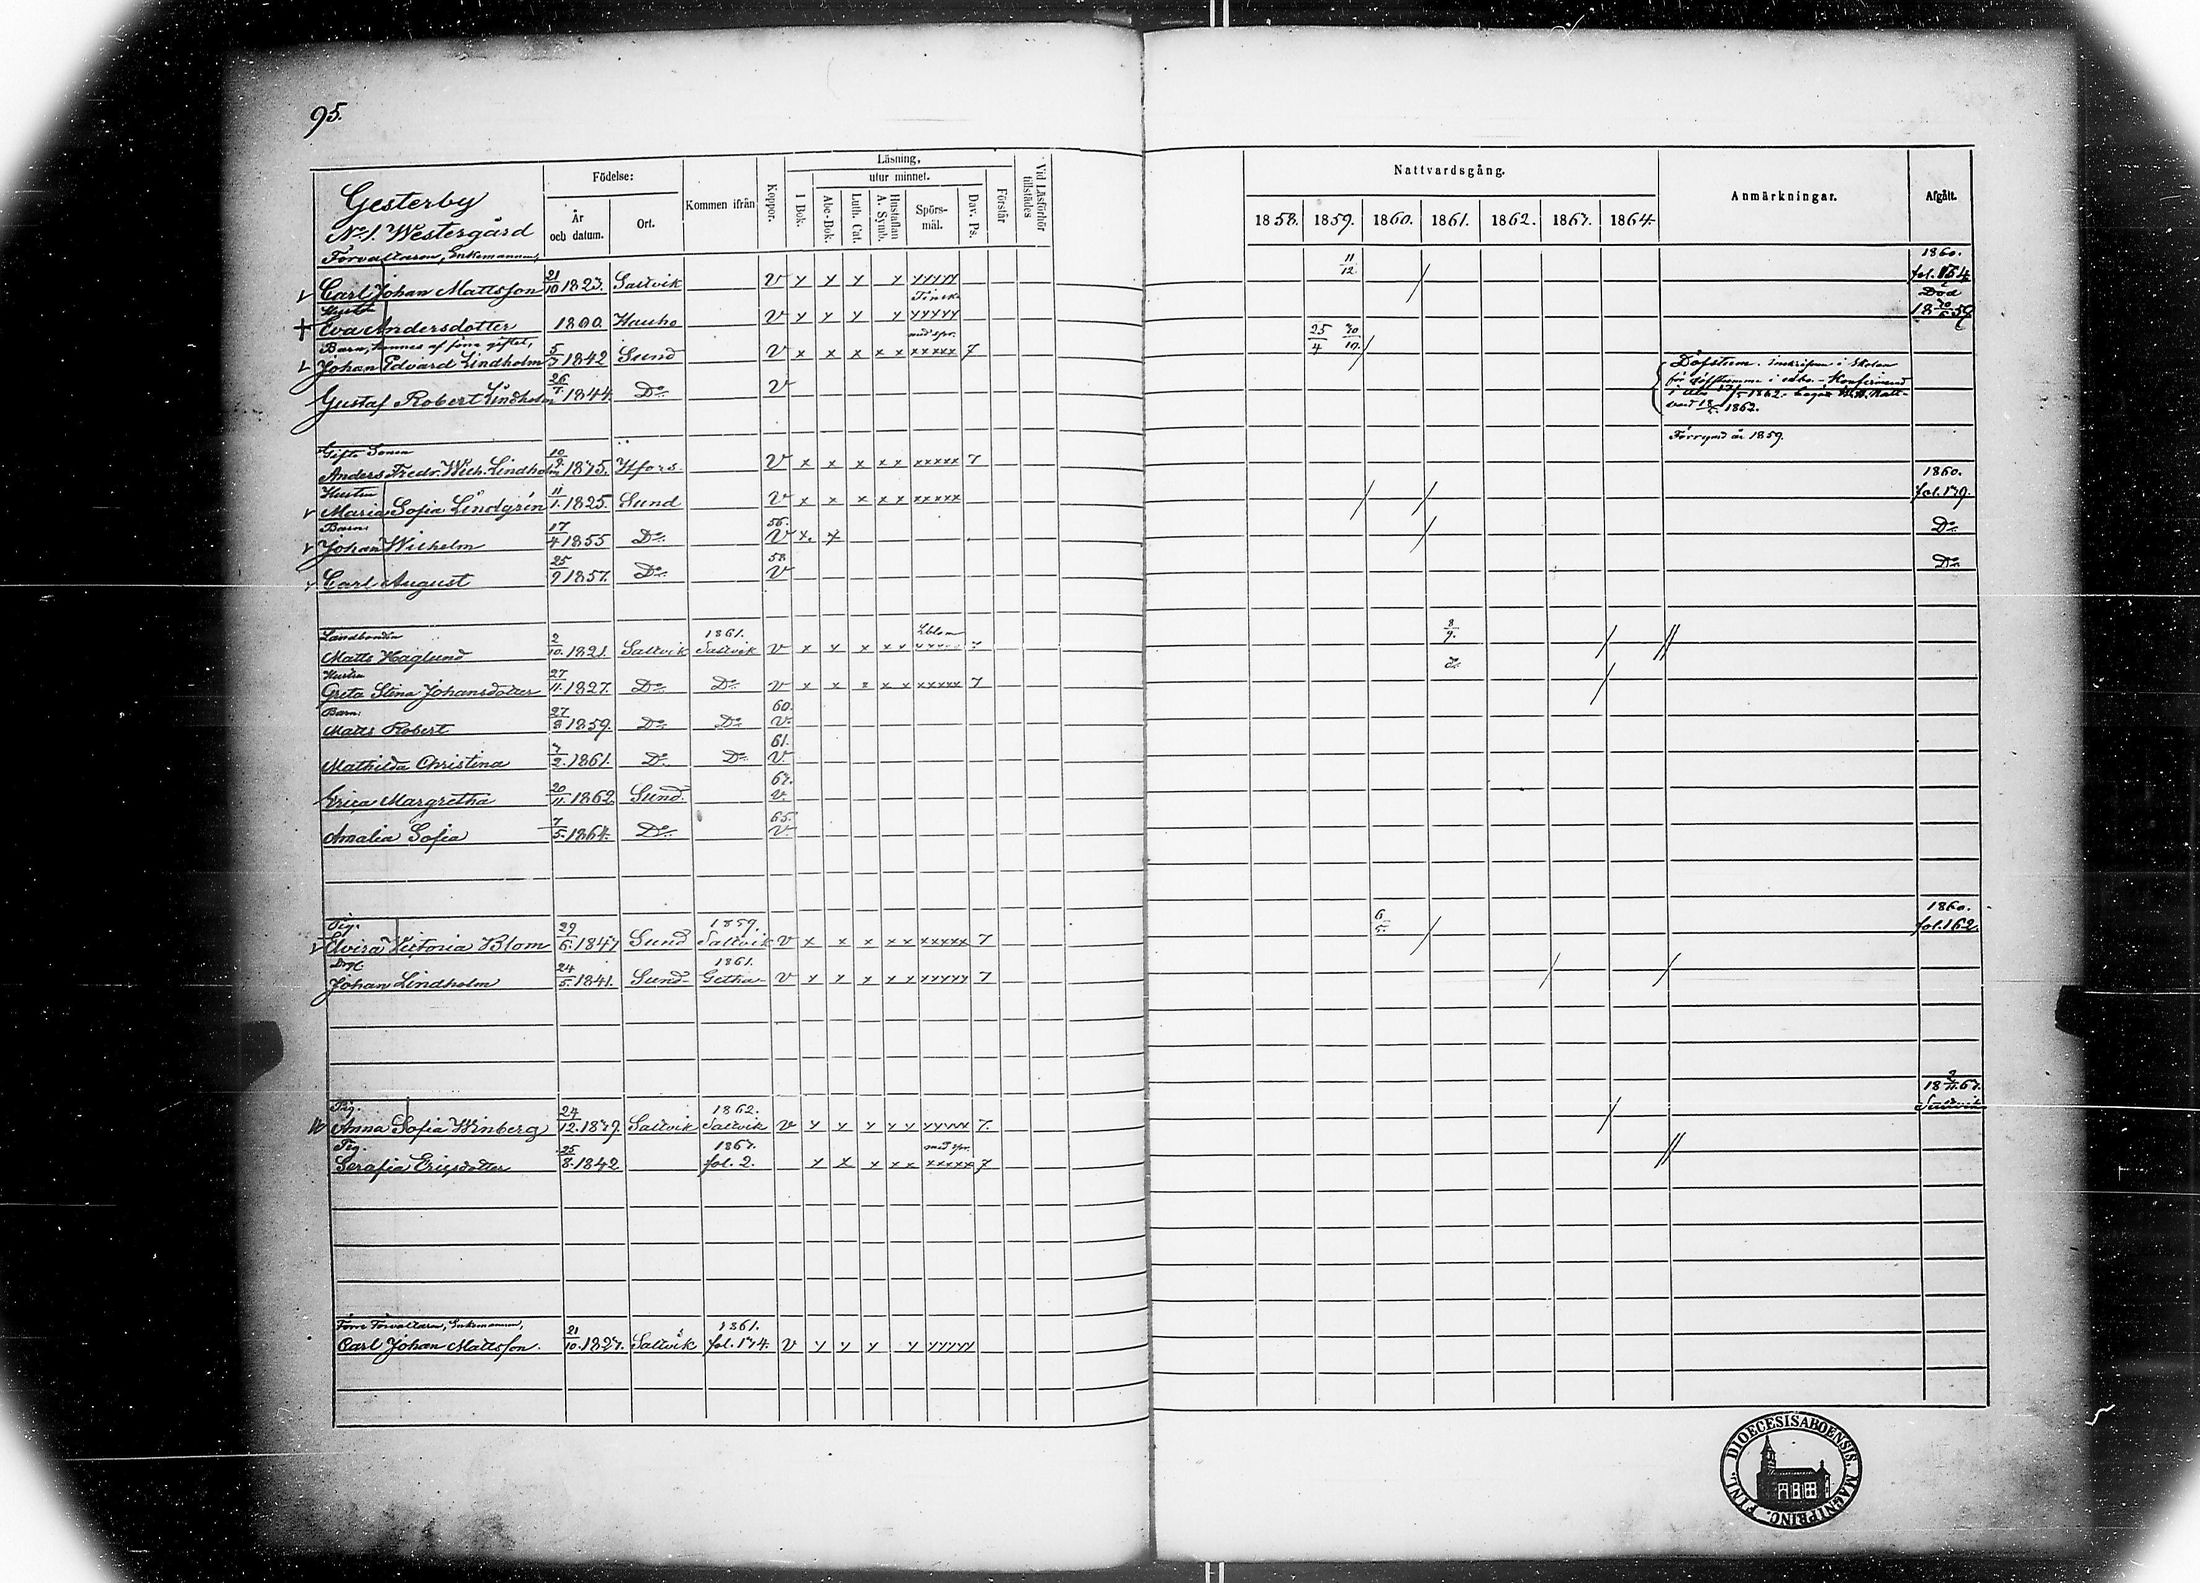 95.
Gesterby
No 1. Westergård
Födelse:
År och datum.
Ort.
Kommen ifrån
Koppor.
Läsning,
I Bok.
utur minnet.
Abc-Bok.
Luth. Cat.
Hustaflan A. Symb.
Spörs-mål.
Dav. Ps.
Förstår
Vid Läsförhör tillstädes
Nattvardsgång.
1858. 1859. 1860. 1861. 1862. 1863. 1864.
Anmärkningar.
Afgått.
Förvaltaren, Enkemannen,
Carl Johan Mattsson 21/10 1823. Saltvik V y y y y yyyyy 11/12 1860. fol. 154
Hustr. Finsk.
Eva Andersdotter 1800. Hauho V y y y y yyyyy 25/4 30/10 Död
Barn, hennes af förra giftet, med spr.
Johan Edvard Lindholm 5/3 1842 Sund V x x x x x xxxxx 7
Gustaf Robert Lindholm 26/7 1844 Do V
Döfstum. Inskrifven i Skolan
för döfstumma i Åbo. - Konfirmerad
i Åbo 1862. begått H. H. Natt-
vard 18/5 1862.
Gifte Sonen
Anders Fredr. Wilh. Lindholm V x x x x x xxxxx 7 Förrymd år 1859.
Hustrun
Maria Sofia Lindgrén 11/1 1825. Sund V x x x x x xxxxx 1860. fol. 179.
Barn:
Johan Wilhelm 17/4 1855 Do 56. V x. x Do
Carl August 25/9 1857. Do 58 V Do
Landbonden
Matts Haglund 2/10 1821. Saltvik 1861. Saltvik V x y x x x 7 8/9.
Hustru
Greta Stina Johansdotter 27/11 1827. Do Do V x x x x x xxxxx 7 Do
Barn:
Matts Robert 27/8 1859. Do Do 60. V.
Mathilda Christina 7/2 1861. Do Do 61. V.
Erica Margretha 20/11 1862 Sund. 63. V.
Amalia Sofia 7/5 1864. Do 65. V.
Pig.
Elvira Victoria Blom 29/6 1841 Sund 1859. Saltvik V x x x x x xxxxx 7 6/5. 1860. fol. 162
Drg.
Johan Lindholm 24/5 1841. Sund 1861. Getha- V x x x x x yyyyy 7
Pig.
Anna Sofia Winberg 24/12 Saltvik 1862. Saltvik V y y y y y yyyyy 7. 18 2/11 63. Saltvik
Pig. med spr.
Serafia Ericsdotter 25/8 1842 1863. fol. 2. y x x x x xxxxx 7
Förre Förvaltaren, Enkemannen,
Carl Johan Mattsson. 21/10 1823. Saltvik 1861. fol. 174. V y y y y yyyyy
FINL. DIOECESIS ABOENSIS. MAGNI PRINC.